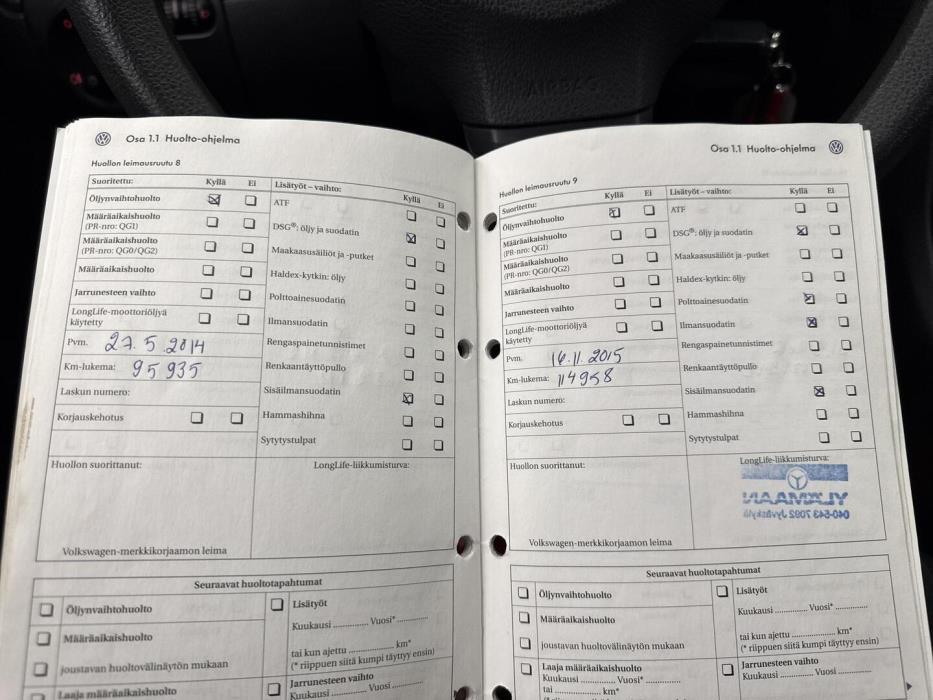 AIRBAG
Osa 1.1 Huolto-ohjelma
Huollon leimausruutu 8
Suoritettu: Kyllä Ei
Öljynvaihtohuolto
Määräaikaishuolto
(PR-nro: QG1)
Määräaikaishuolto
(PR-nro: QG0/QG2)
Määräaikaishuolto
Jarrunesteen vaihto
LongLife-moottoriöljyä
käytetty
Pvm. 27.5.2014
Km-lukema: 95935
Laskun numero:
Korjauskehotus
Lisätyöt – vaihto: Kyllä Ei
ATF
DSG®: öljy ja suodatin
Maakaasusäiliöt ja -putket
Haldex-kytkin: öljy
Polttoainesuodatin
Ilmansuodatin
Rengaspainetunnistimet
Renkaantäyttöpullo
Sisäilmansuodatin
Hammashihna
Sytytystulpat
Huollon suorittanut:
LongLife-liikkumisturva:
Volkswagen-merkkikorjaamon leima
Seuraavat huoltotapahtumat
Öljynvaihtohuolto
Määräaikaishuolto
joustavan huoltovälinäytön mukaan
Laaja määräaikaishuolto
Lisätyöt
Kuukausi .............. Vuosi* ..............
tai kun ajettu .................... km*
(* riippuen siitä kumpi täyttyy ensin)
Jarrunesteen vaihto
Kuukausi .............. Vuosi ..............
Osa 1.1 Huolto-ohjelma
Huollon leimausruutu 9
Suoritettu: Kyllä Ei
Öljynvaihtohuolto
Määräaikaishuolto
(PR-nro: QG1)
Määräaikaishuolto
(PR-nro: QG0/QG2)
Määräaikaishuolto
Jarrunesteen vaihto
LongLife-moottoriöljyä
käytetty
Pvm. 16.11.2015
Km-lukema: 114958
Laskun numero:
Korjauskehotus
Lisätyöt – vaihto: Kyllä Ei
ATF
DSG®: öljy ja suodatin
Maakaasusäiliöt ja -putket
Haldex-kytkin: öljy
Polttoainesuodatin
Ilmansuodatin
Rengaspainetunnistimet
Renkaantäyttöpullo
Sisäilmansuodatin
Hammashihna
Sytytystulpat
Huollon suorittanut:
LongLife-liikkumisturva:
YLÄMAAN
040-543 7092 Jyväskylä
Volkswagen-merkkikorjaamon leima
Seuraavat huoltotapahtumat
Öljynvaihtohuolto
Määräaikaishuolto
joustavan huoltovälinäytön mukaan
Laaja määräaikaishuolto
Kuukausi .............. Vuosi* ..............
tai .................... km*
Lisätyöt
Kuukausi .............. Vuosi* ..............
tai kun ajettu .................... km*
(* riippuen siitä kumpi täyttyy ensin)
Jarrunesteen vaihto
Kuukausi .............. Vuosi ..............